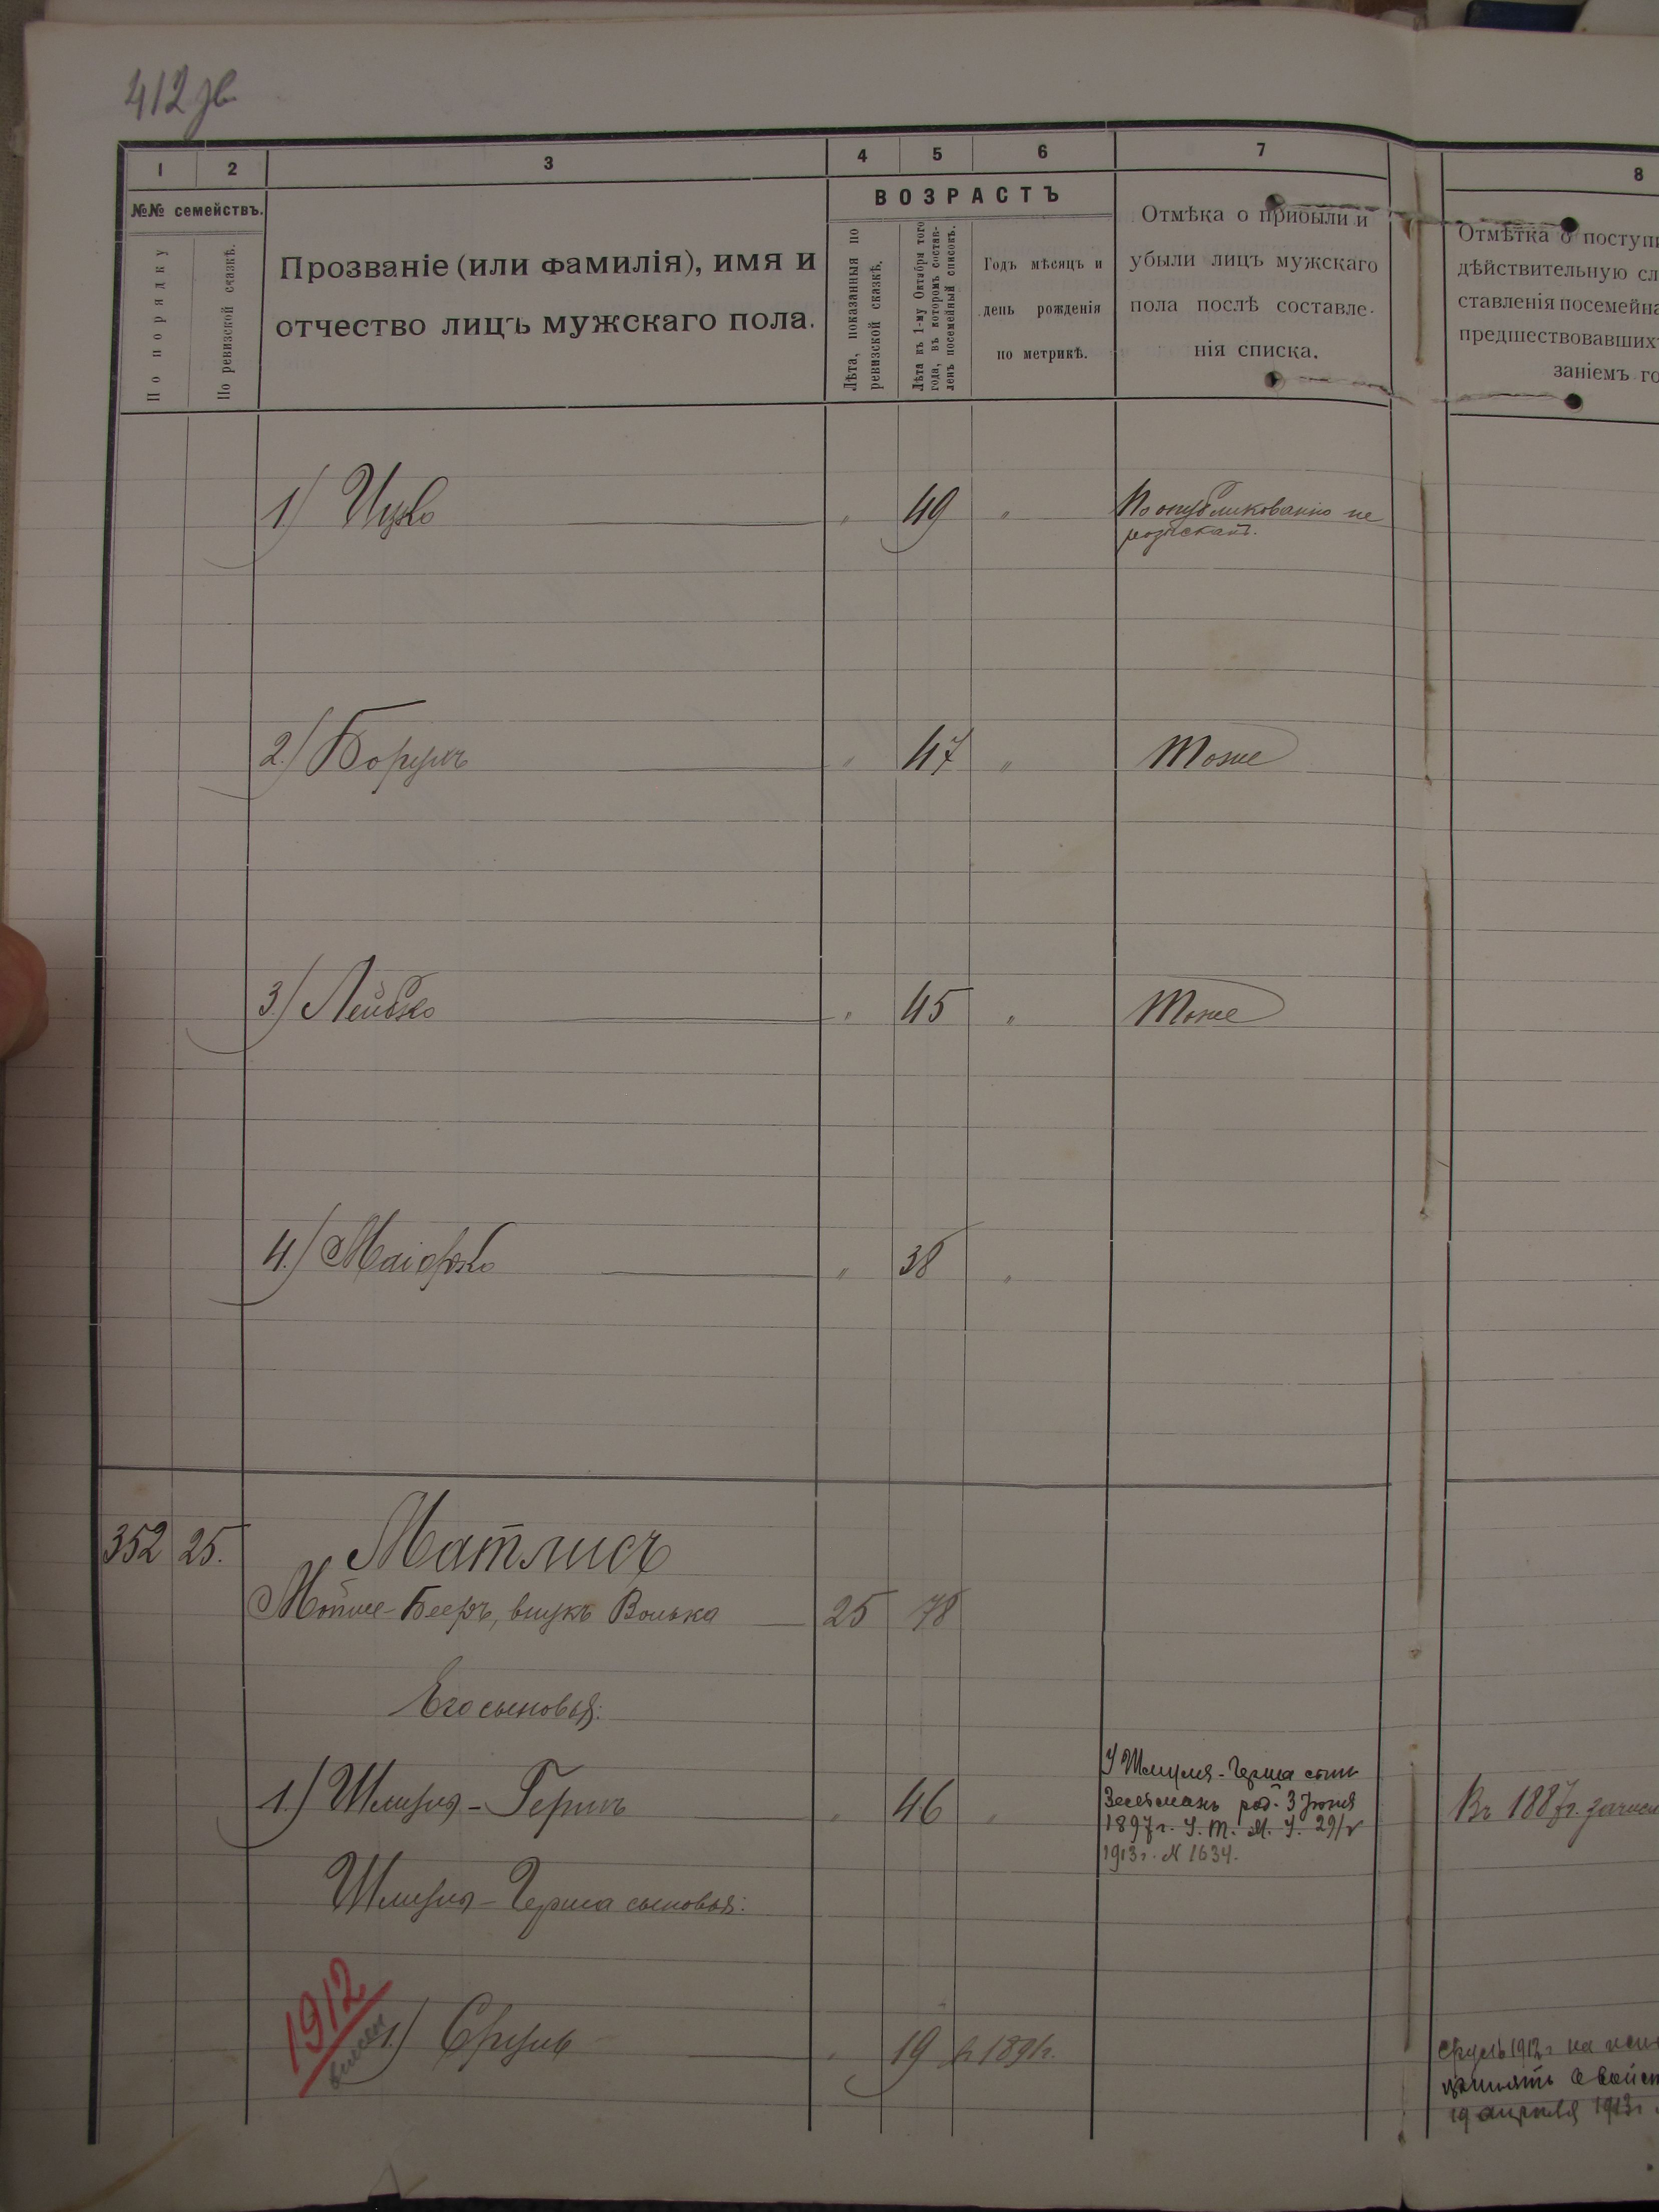 412 зв
1 2 3 4 5 6 7 8
№№ семействъ.
По порядку
По ревизской сказкѣ.
Прозваніе (или фамилія), имя и
отчество лицъ мужскаго пола.
ВОЗРАСТЪ
Лѣта, показанныя по
ревизской сказкѣ.
Лѣта къ 1-му Октября того
года, въ которомъ состав-
ленъ посемейный списокъ.
Годъ мѣсяцъ и
день рожденія
по метрикѣ.
Отмѣка о прибыли и
убыли лицъ мужскаго
пола послѣ составле-
нія списка.
Отмѣтка о поступи
дѣйствительную сл
ставленія посемейна
предшествовавших
заніемъ го
1) Ицко " 49 " По опубликованію не
розысканъ.
2) Борухъ " 47 " Тоже
3) Лейбко " 45 " Тоже
4) Маіорко " 38 "
352 25. Матлисъ
Мотше-Бееръ, внукъ Волька 25 78
Его сыновья:
1) Шмуля-Гершъ " 46 "
У Шмуля-Герша сынъ
Зельманъ род. 3 Іюня
1897 г. У. Т. М. У. 29/V
1913 г. N 1634.
Въ 1887 г. зачисл
Шмуля-Герша сыновья:
1912
1) Сруль " 19 1891г.
Сруль 1912 г на
принятъ
19 апрѣля 1913 г